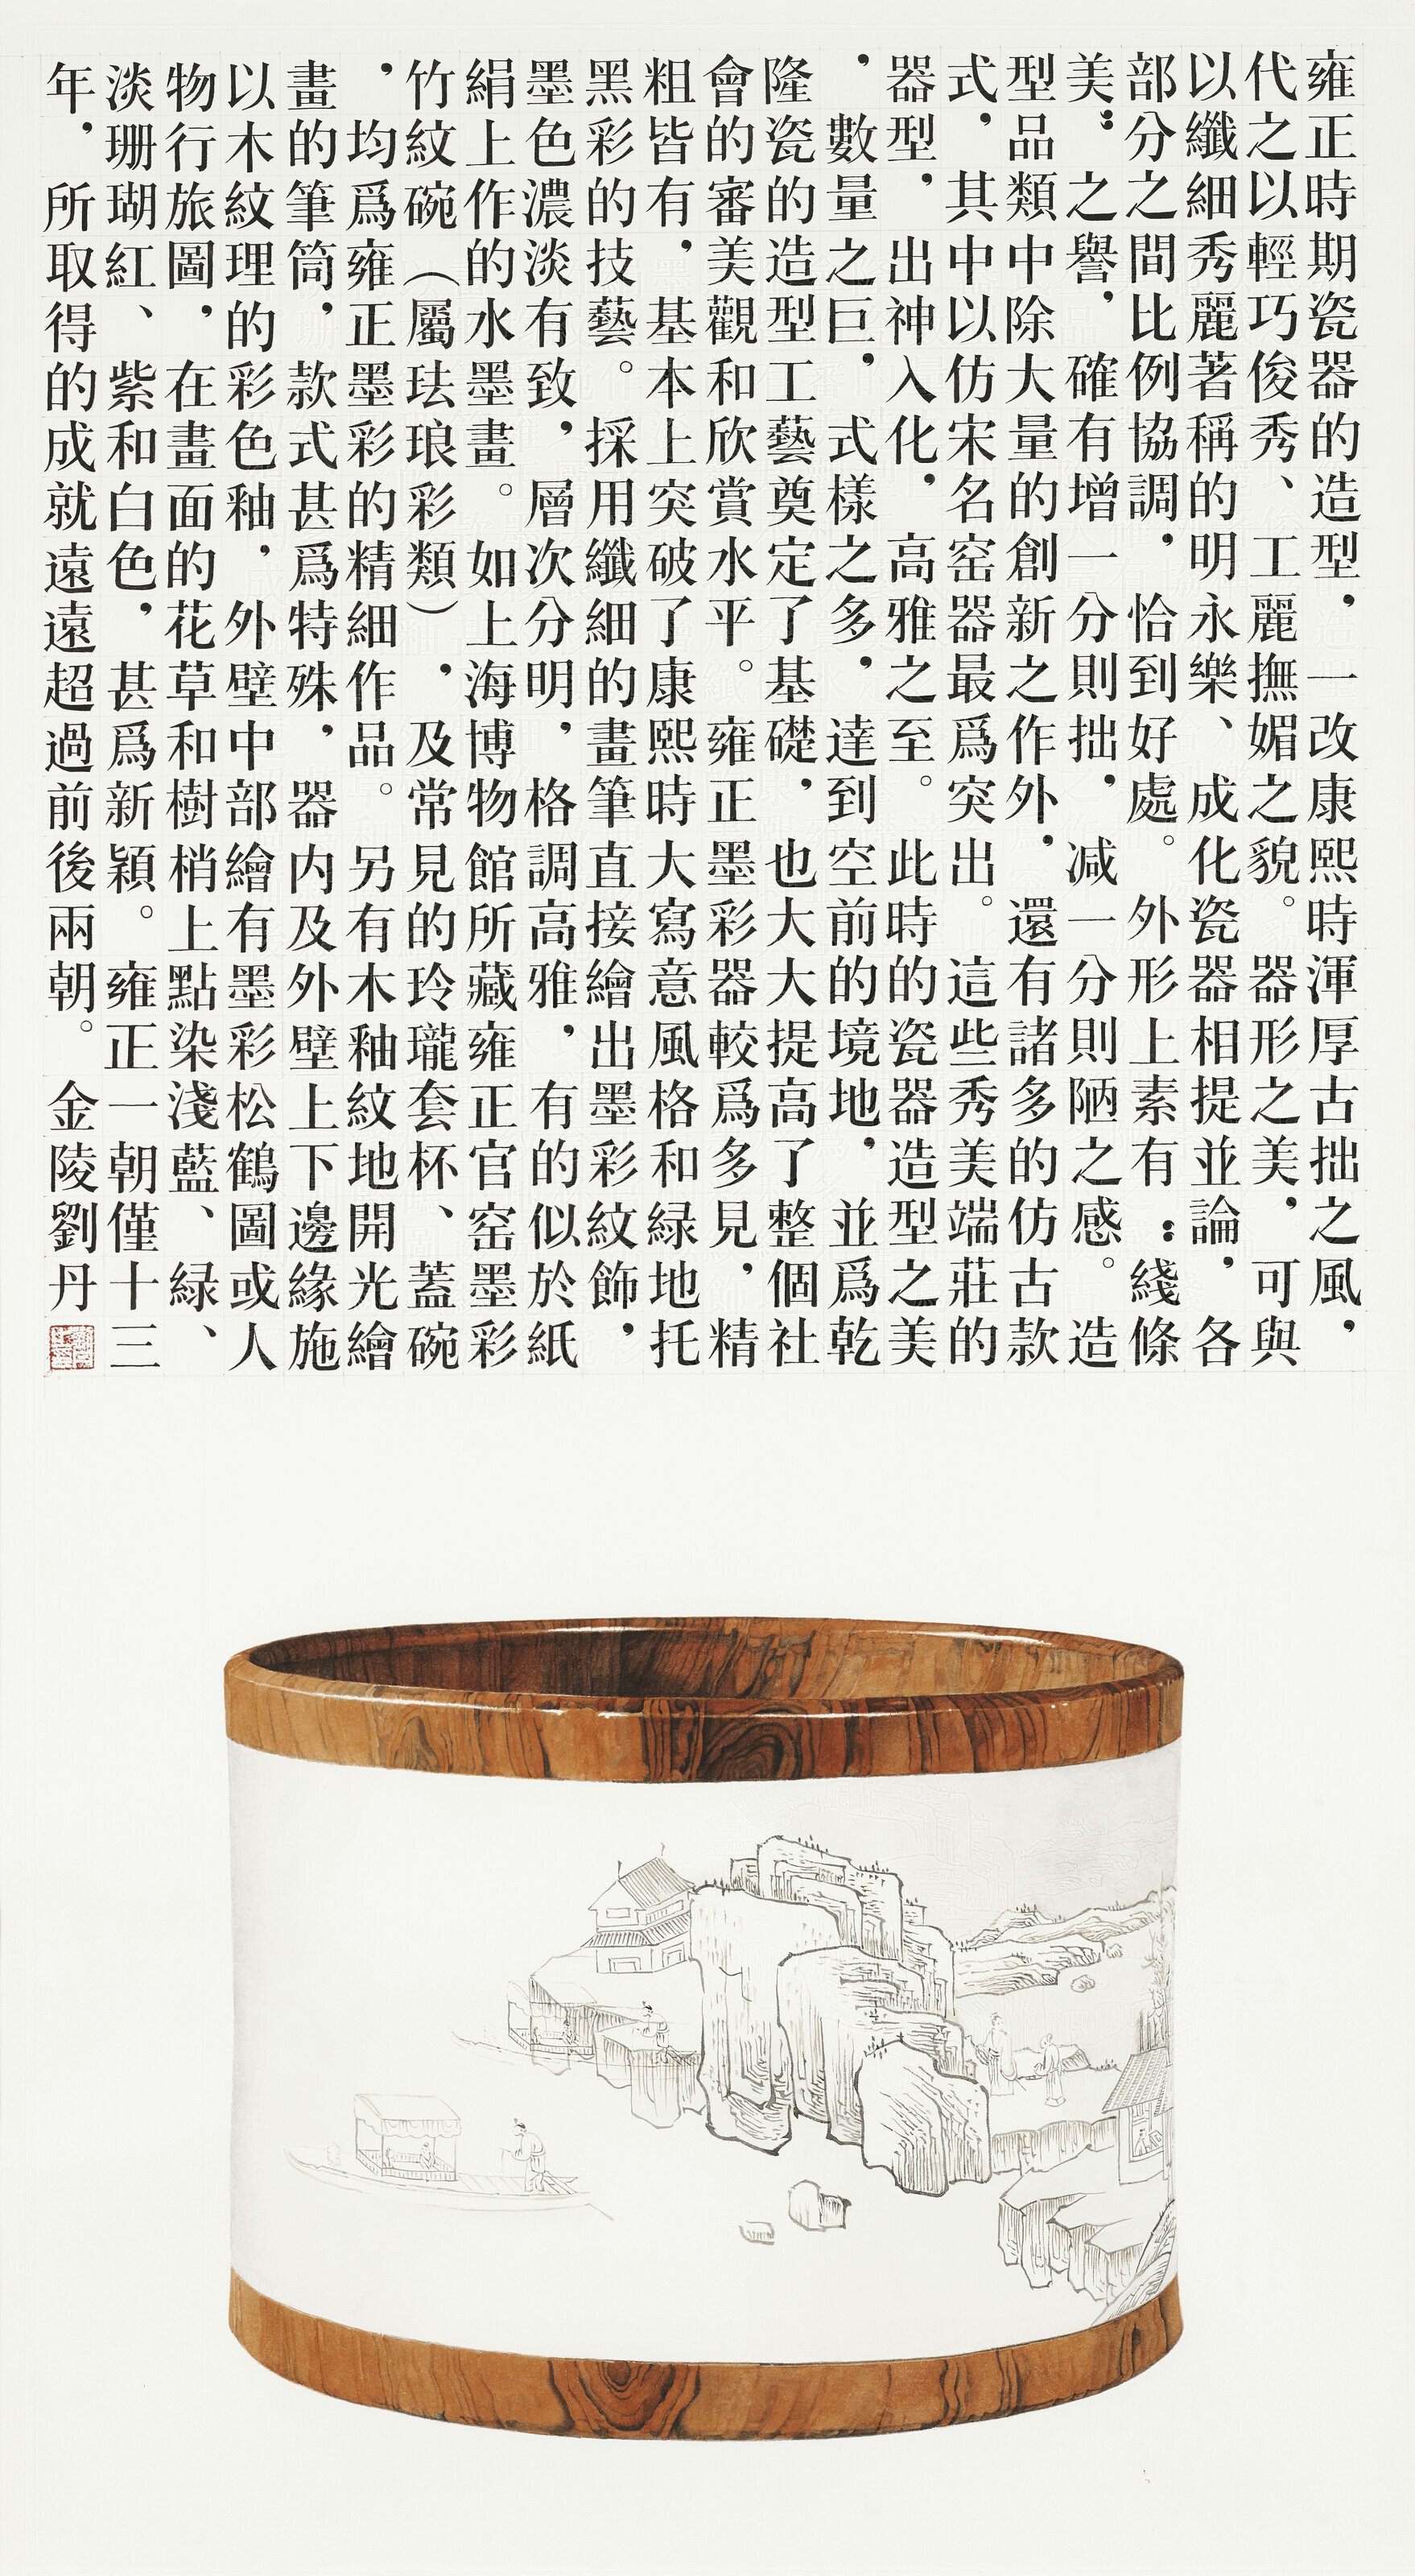 雍正時期瓷器的造型，一改康熙時渾厚古拙之風，
代之以輕巧俊秀、工麗撫媚之貌。器形之美，可與
以纖細秀麗著稱的明永樂、成化瓷器相提並論，各
部分之間比例協調，恰到好處。外形上素有：綫條
美：之譽，確有增一分則拙，減一分則陋之感。造
型品類中除大量的創新之作外，還有諸多的仿古款
式，其中以仿宋名窑器最爲突出。這些秀美端莊的
器型，出神入化，高雅之至。此時的瓷器造型之美
，數量之巨，式樣之多，達到空前的境地，並爲乾
隆瓷的造型工藝奠定了基礎，也大大提高了整個社
會的審美觀和欣賞水平。雍正墨彩器較爲多見，精
粗皆有，基本上突破了康熙時大寫意風格和緑地托
黑彩的技藝。採用纖細的畫筆直接繪出墨彩紋飾，
墨色濃淡有致，層次分明，格調高雅，有的似於紙
絹上作的水墨畫。如上海博物館所藏雍正官窑墨彩
竹紋碗（屬珐琅彩類），及常見的玲瓏套杯、蓋碗
，均爲雍正墨彩的精細作品。另有木釉紋地開光繪
畫的筆筒，款式甚爲特殊，器内及外壁上下邊緣施
以木紋理的彩色釉，外壁中部繪有墨彩松鶴圖或人
物行旅圖，在畫面的花草和樹梢上點染淺藍、緑、
淡珊瑚紅、紫和白色，甚爲新穎。雍正一朝僅十三
年，所取得的成就遠遠超過前後兩朝。金陵劉丹